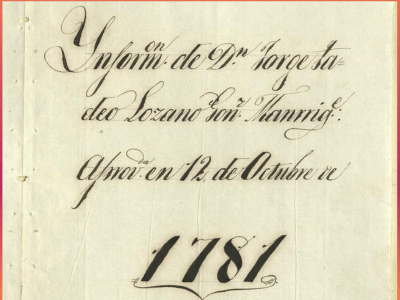 Ynform.on de Dn Jorge ta=
deo Lozano Gonz. Manrriq.e:
Aprov.da en 12 de Octubre de
1781